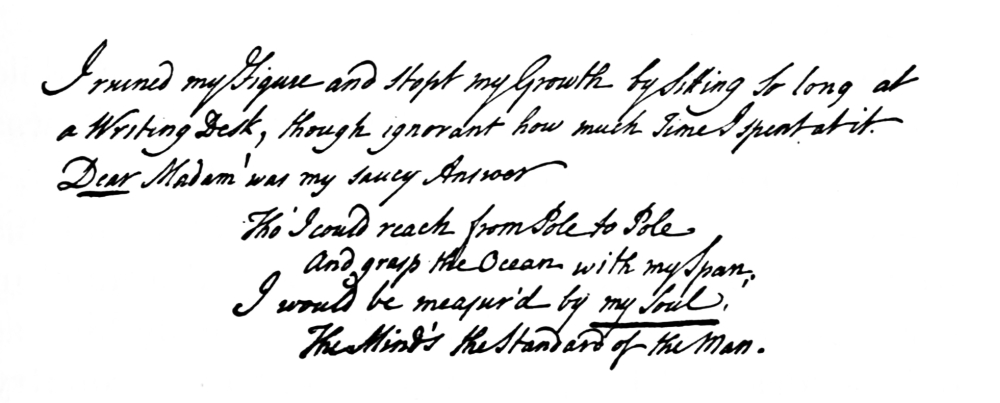 I ruined my Figure and stopt my Growth by sitting so long at
a Writing Desk, though ignorant how much Time I spent at it.
Dear Madam' was my saucy Answer
Tho' I could reach from Pole to Pole
And grasp the Ocean with my Span,
I would be measur'd by my Soul!
The Mind's the Standard of the Man.